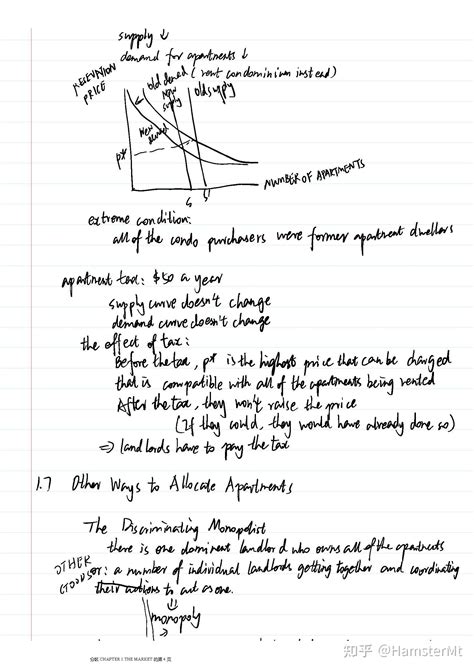 supply ↓
demand for apartments ↓
old demand (rent condominium instead)
RESERVATION
PRICE
new
supply
old supply
new
demand
p*
S S'
NUMBER OF APARTMENTS
extreme condition:
all of the condo purchasers were former apartment dwellers
apartment tax: $50 a year
supply curve doesn't change
demand curve doesn't change
the effect of tax:
Before the tax, p* is the highest price that can be charged
that is compatible with all of the apartments being rented
After the tax, they won't raise the price
(If they could, they would have already done so)
⇒ landlords have to pay the tax
1.7 Other Ways to Allocate Apartments
The Discriminating Monopolist
there is one dominent landlord who owns all of the apartments
OTHER
GOODS
or: a number of individual landlords getting together and coordinating
their actions to act as one.
⇓
monopoly
CHAPTER 1 THE MARKET
知乎 @HamsterMt